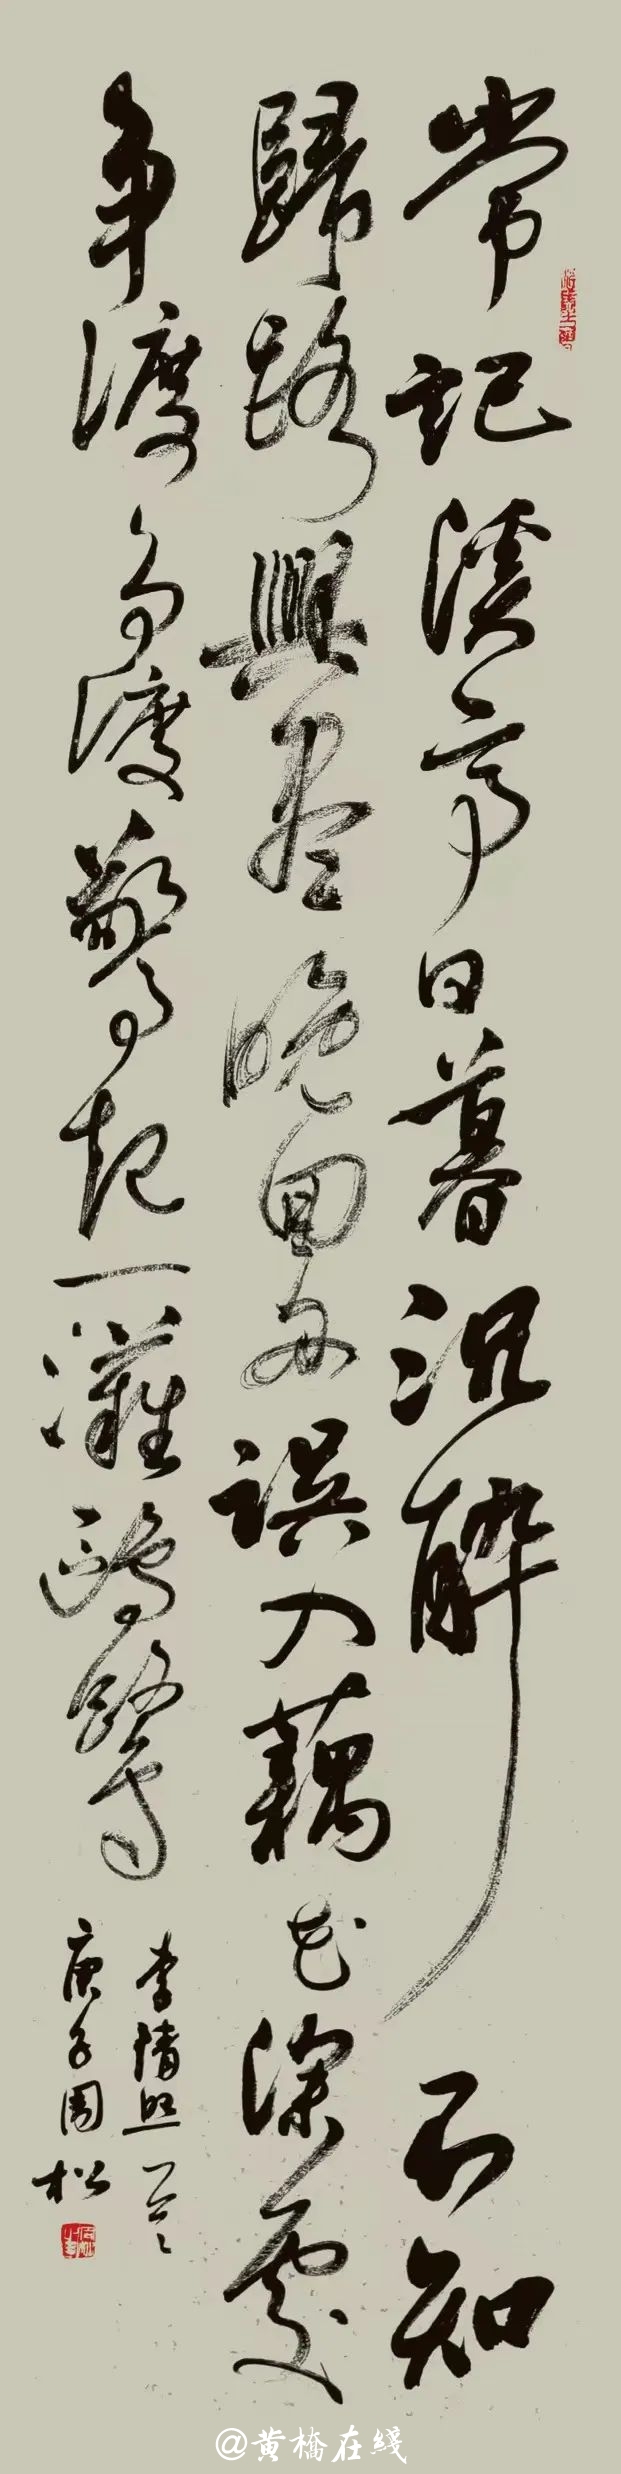 常記溪亭日暮沉醉不知
歸路興盡晚回舟誤入藕花深處
争渡争渡驚起一灘鷗鷺
李清照
庚子周松
@黄橋在綫